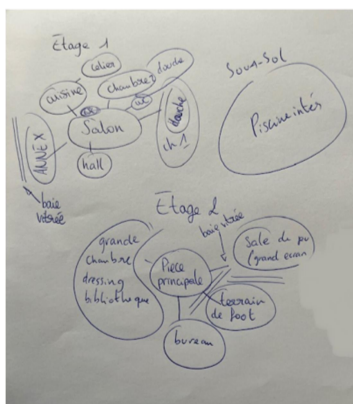 Étage 1
Sous-Sol
celier
cuisine
chambre 2
douche
wc
wc
Salon
douche
ch 1
ANNEX
hall
baie
vitrée
Piscine intér
Étage 2
baie vitrée
grande
chambre
dressing
bibliothèque
Pièce
principale
Salle de jeu
(grand ecran
terrain
de foot
bureau